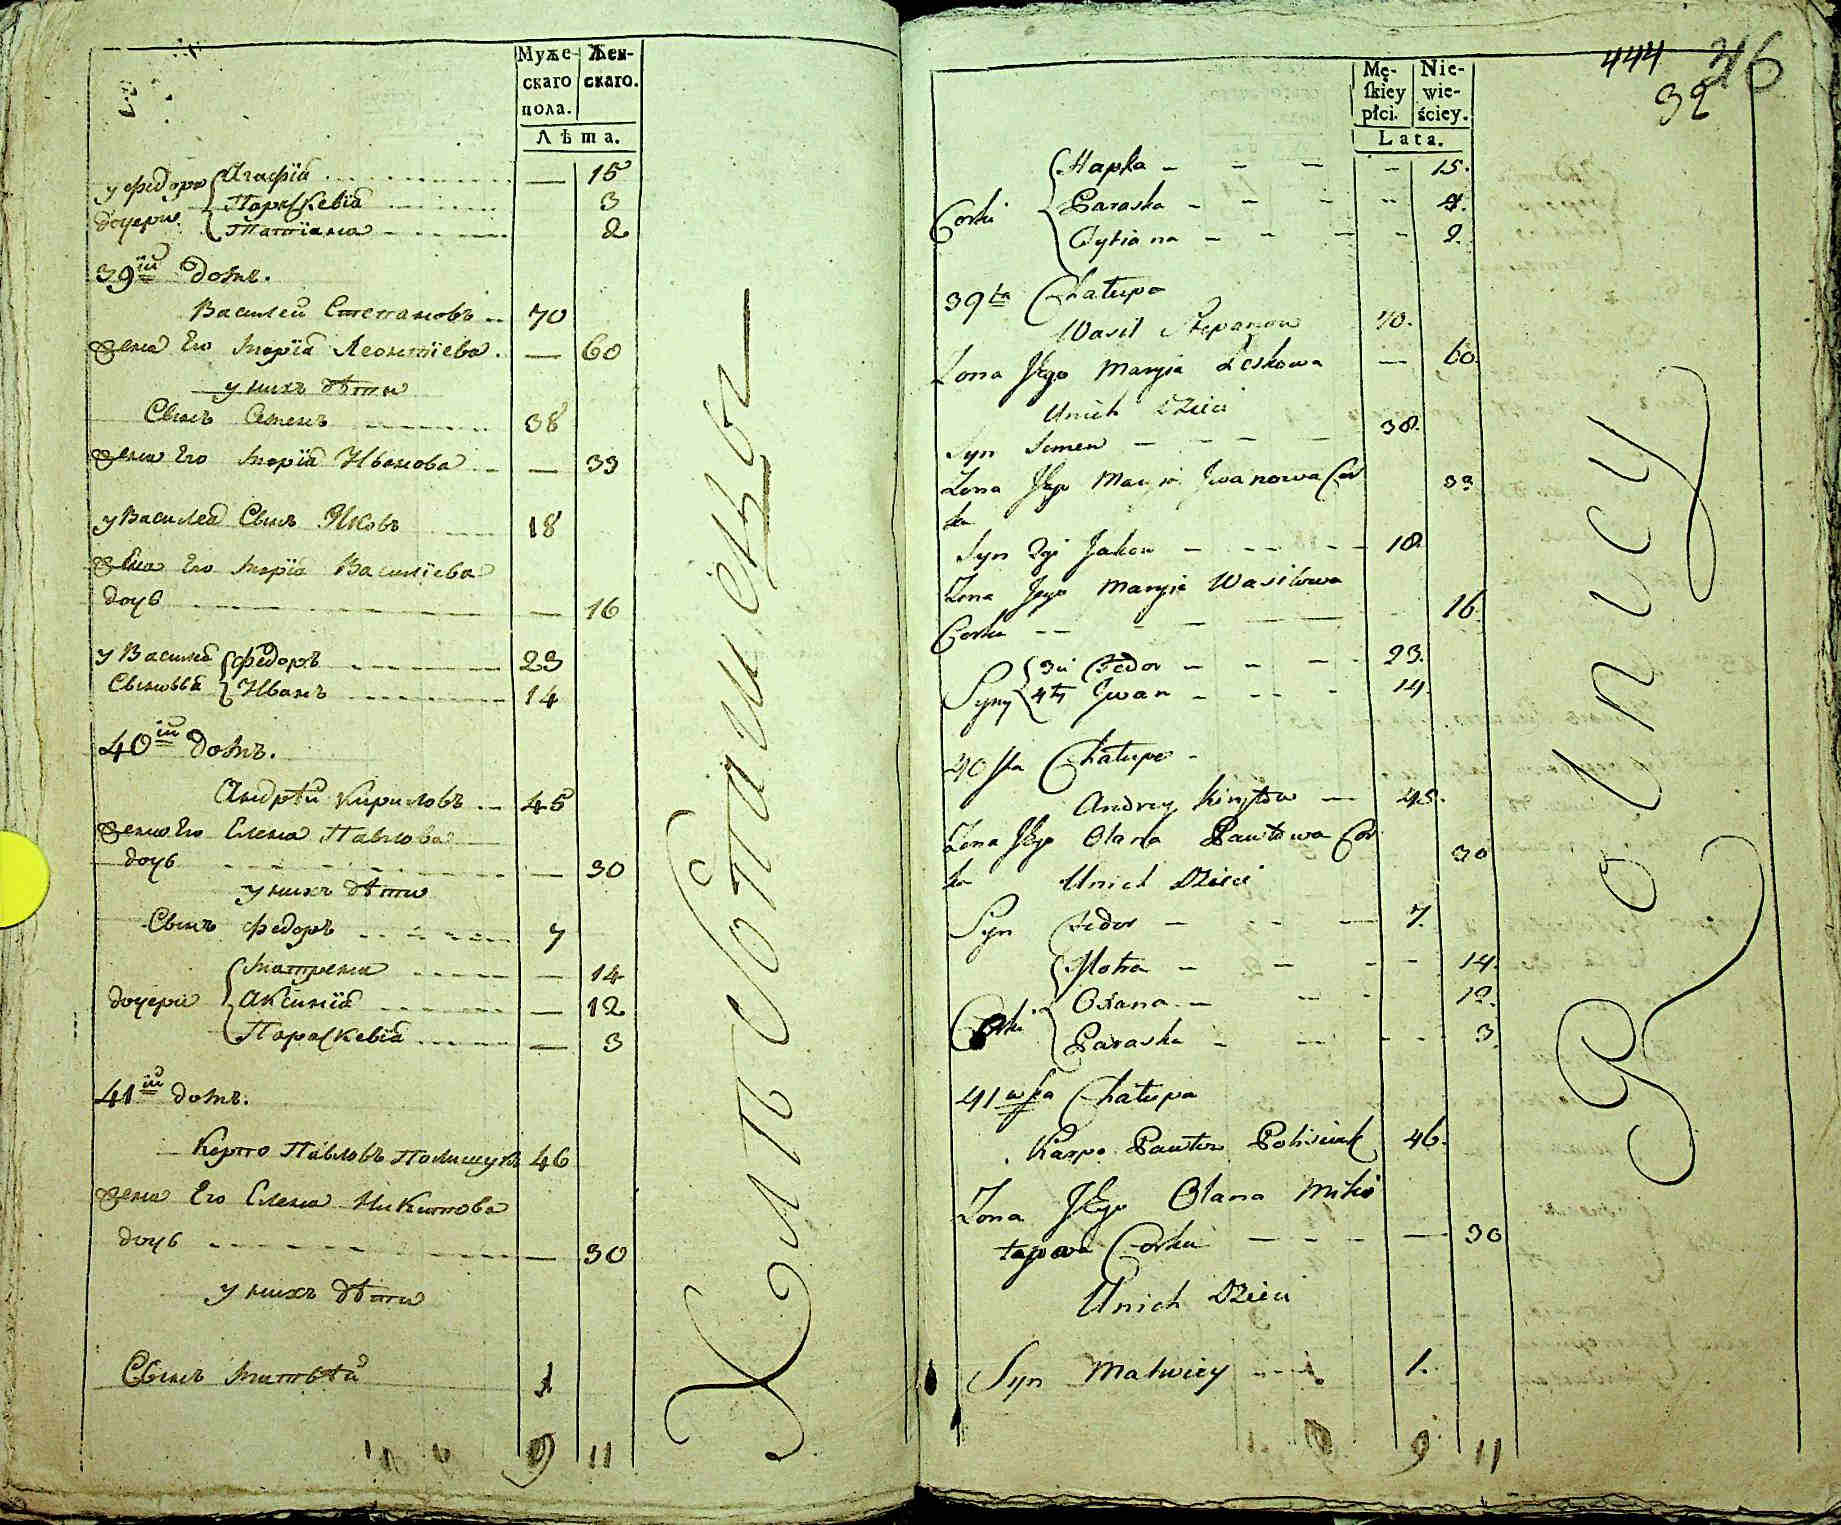 Муже- Жен-
скаго скаго.
пола.
Лѣта.
у Федора Агафіа — 15
дочери Параскевіа 3
Татіана 2
39ій домъ.
Василей Степановъ 70
жена Его Маріа Леонтіева — 60
у нихъ дѣти
Сынъ Семенъ 38
жена Его Маріа Иванова — 33
у Василеа Сынъ Яковъ 18
жена Его Маріа Василіева
дочь — 16
у Василеа Федоръ 23
Сыновьа Иванъ 14
40ій домъ.
Андрѣй Кириловъ 45
жена Его Елена Павлова
дочь — 30
у нихъ дѣти
Сынъ Федоръ 7
Матрена — 14
дочери Аксиніа — 12
Параскевіа — 3
41ій домъ.
Карпо Павловъ Полищукъ 46
жена Его Елена Никитова
дочь — 30
у нихъ дѣти
Сынъ Матвѣй 1
9 11
Хлѣборобницы
444 76
32
Mę- Nie-
skiey wie-
płci. ściey.
Lata.
Hapka — 15.
Corki Paraska 4.
Tytiana 2.
39ta Chałupa
Wasil Stepanow 70.
Zona Jego Maryia Leskowa — 60.
Unich Dzieci
Syn Semen 38.
Zona Jego Maryia Iwanowa Cor 33
ka
Syn 2gi Jakow 18.
Zona Jego Maryia Wasilowa
Corka 16.
3ci Fedor 23.
Syny 4ty Iwan 14.
40sta Chałupa
Andrey Kiryłow 45.
Zona Jego Olana Pawłowa Cor 30
ka Unich Dzieci
Syn Fedor 7.
Motra 14.
Corki Oxana 12.
Paraska 3
41wsza Chałupa
Karpo Pawłow Polisiuk 46.
Zona Jego Olana Miki
towa Corka — 30
Unich Dzieci
Syn Matwiey 1.
9 11
Rolnicy